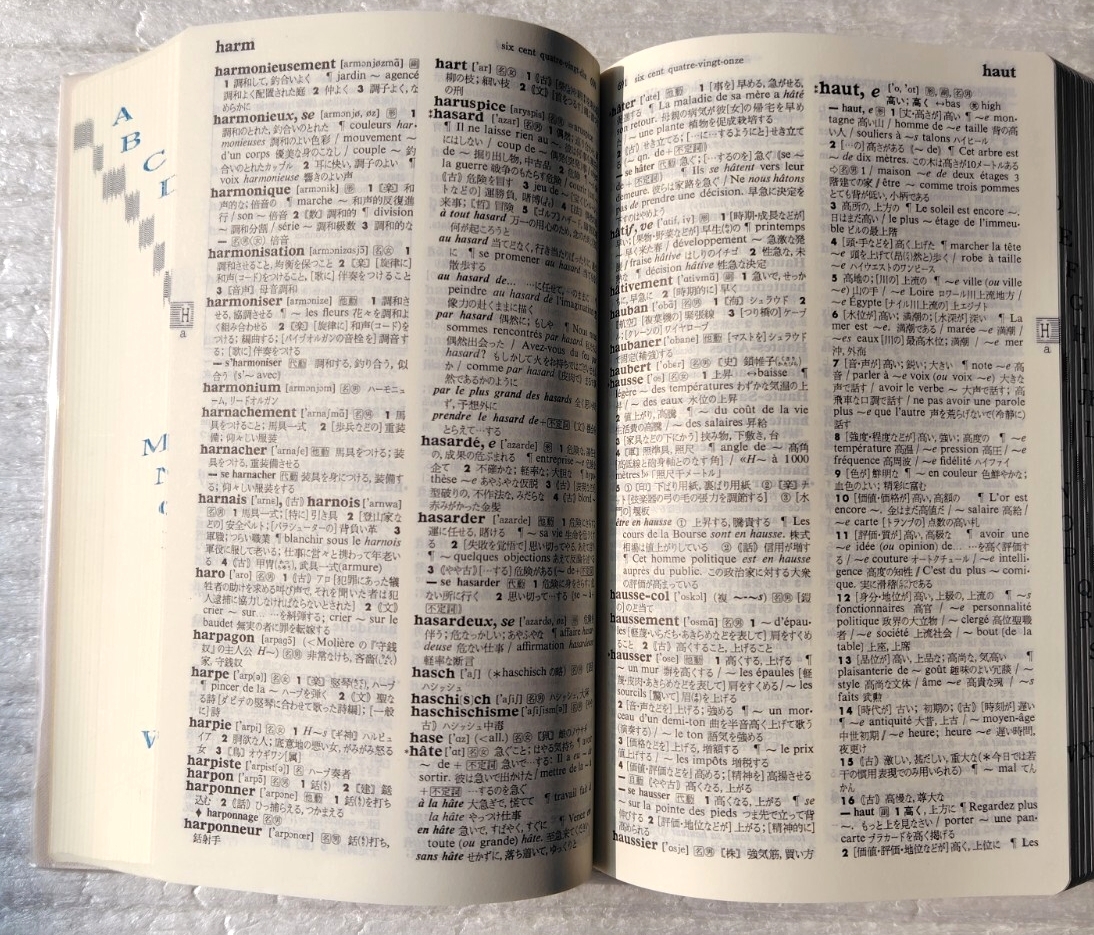 harm
harmonieusement [armɔnjøzmɑ̃] 副
1 調和して, 釣合いよく ¶ jardin ～ agencé
調和よく配置された庭 2 仲よく 3 調子よく, な
めらかに
harmonieux, se [armɔnjø, øz] 形 1
調和のとれた, 釣合いのとれた ¶ couleurs har-
monieuses 調和のよい色彩 / mouvement ～
d'un corps 優美な身のこなし / couple ～ 釣
合いのとれたカップル 2 耳に快い, 調子のよい ¶
voix harmonieuse 響きのよい声
harmonique [armɔnik] 形 1 〖楽〗 和
声的な; 倍音の ¶ marche ～ 和声的反復進
行 / son ～ 倍音 2 〖数〗 調和的 ¶ division
～ 調和分割 / série ～ 調和級数 3 調和的な
— 名男女 倍音
harmonisation [armɔnizasjɔ̃] 名女 1
調和させること, 均衡を保つこと 2 〖楽〗 [旋律に]
和声(コード)をつけること; [歌に] 伴奏をつけること
3 〖音声〗 母音調和
harmoniser [armɔnize] 他動 1 調和さ
せる, 協調させる ¶ ～ les fleurs 花々を調和よ
く組み合わせる 2 〖楽〗 [旋律に] 和声(コード)を
つける; 編曲する; [パイプオルガンの音栓を] 調音す
る; [歌に] 伴奏をつける
— s'harmoniser 代動 調和する, 釣り合う, 似
合う (s'～ avec)
harmonium [armɔnjɔm] 名男 ハーモニュ
ーム, リードオルガン
harnachement [ˈarnaʃmɑ̃] 名男 1 馬
具をつけること; 馬具一式 2 [歩兵などの] 重装
備; 仰々しい服装
harnacher [ˈarnaʃe] 他動 馬具をつける; 装
具をつける, 重装備させる
— se harnacher 代動 装具を身につける, 装備す
る; 仰々しい服装をする
harnais [ˈarnɛ], 〘古〙 harnois [ˈarnwa]
名男 1 馬具一式; [特に] 引き具 2 [登山家な
どの] 安全ベルト; [パラシューターの] 背負い革 3
軍職; つらい職業 ¶ blanchir sous le harnois
軍役に服して老いる; 仕事に営々と携わって年老い
る 4 〘古〙 甲冑, 武具一式(armure)
haro [ˈaro] 名男 1 〘古〙 アロ[犯罪にあった犠
牲者の助けを求める叫び声で, それを聞いた者は犯
人逮捕に協力しなければならないとされた] 2 〘文〙
crier ～ sur... …を糾弾する; crier ～ sur le
baudet 無実の者に罪を転嫁する
harpagon [arpagɔ̃] (<Molière の『守銭
奴』の主人公 H～) 名男 非常なけち, 吝嗇
家, 守銭奴
harpe [ˈarp(ə)] 名女 1 〖楽〗 竪琴, ハープ
¶ pincer de la ～ ハープを弾く 2 〘文〙 聖な
る詩 [ダビデの竪琴に合わせて歌った詩編]; [一般
に] 詩
harpie [ˈarpi] 名女 1 H～s 〖ギ神〗 ハルピュ
イア 2 強欲な人; 底意地の悪い女, がみがみ怒る
女 3 〖鳥〗 オウギワシ[属]
harpiste [ˈarpist(ə)] 名 ハープ奏者
harpon [ˈarpɔ̃] 名男 1 銛 2 〖建〗 鎹
harponner [ˈarpɔne] 他動 1 銛を打ち
込む 2 〘話〙 ひっ捕らえる, つかまえる
♦ harponnage 名男
harponneur [ˈarpɔnœr] 名男 銛打ち,
銛射手
six cent quatre-vingt-dix
hart [ˈar] 名女 1 〘古〙
柳の枝; 細い枝 2 〘文〙
の刑
haruspice [aryspis] 名男
hasard [ˈazar] 名男 1 偶然
¶ Il ne laisse rien au ～
にはしない / coup de ～
de ～ 掘り出し物, 中古品
la guerre 戦争のもたらす危険
〘古〙 危険を冒す 3 jeu de ～
トなどの] 運勝負, 賭博
来事; 〖哲〗 冒険 5 〖ゴルフ〗
à tout hasard 万一の用心のため
何が起ころうと
au hasard 当てどなく, 行き当たりばったりに
に ¶ se promener au hasard
散歩する
au hasard de... …に任せて
peindre au hasard de l'imagination
像力の赴くままに描く
par hasard 偶然に; もしや ¶ Nous nous
sommes rencontrés par hasard
偶然出会った / Avez-vous du feu par
hasard? もしかして火をお持ちでは
か / comme par hasard
然であるかのように
par le plus grand des hasards
ず, 予想外に
prendre le hasard de+不定詞
とらえて…する
hasardé, e [ˈazarde] 形 1 危険な
の, 成果の危ぶまれる ¶ entreprise ～e
企て 2 不確かな; 軽率な; 大胆な
thèse ～e あやふやな仮説 3 〘古〙
型破りの, 不作法な, みだらな 4 〘古〙 blond
赤みがかった金髪
hasarder [ˈazarde] 他動 1 危険にさらす
運に任せる, 賭ける ¶ ～ sa vie
2 [失敗を覚悟で] 思い切ってやる
¶ ～ quelques objections
3 〘やや古〙 […する] 危険がある(～ de+不定詞)
— se hasarder 代動 1 危険に身をさらす
ない所に行く 2 思い切って…する
不定詞)
hasardeux, se [ˈazardø, øz] 形
伴う; 危なっかしい; あやふやな ¶ affaire hasar-
deuse 危ない仕事 / affirmation
軽率な断言
hasch [ˈaʃ] (*haschisch の略) 名男
ハシッシュ
haschi(s)ch [ˈaʃiʃ] 名男 ハシッシュ, 大麻
haschischisme [ˈaʃiʃism(ə)] 名男
古〙 ハシッシュ中毒
hase [ˈaz] (<all.) 名女 〖狩〗 雌のノウサギ
hâte [ˈɑt] 名女 急ぐこと; はやる気持ち
～ de +不定詞 急いで…する
sortir. 彼は急いで出かけた / mettre de la
+不定詞 …するのを急ぐ
à la hâte 大急ぎで, 慌てて ¶ travail fait à
la hâte やっつけ仕事
en hâte 急いで, すばやく, すぐに
toute (ou grande) hâte.
sans hâte せかずに, 落ち着いて, ゆっくりと
six cent quatre-vingt-onze
haut
hâter [ˈɑte] 他動 1 [事を] 早める, 急がせる,
¶ La maladie de sa mère a hâté
son retour. 母親の病気が彼(女)の帰宅を早め
une plante 植物を促成栽培する
〘古〙 せき立てる; […に…するようにと] せき立て
qn. de +不定詞)
se hâter 代動 急ぐ; […するのを] 急ぐ (se ～
de +不定詞) ¶ Ils se hâtent vers leur
demeure. 彼らは家路を急ぐ / Ne nous hâtons
pas de prendre une décision. 早急に決定を
hâtif, ve [ˈɑtif, iv] 形 1 [時期・成長などが]
[果物・野菜などが] 早生の ¶ printemps
早い春 / développement ～ 急激な発
展 / fraise hâtive はしりのイチゴ 2 性急な, 未
¶ décision hâtive 性急な決定
hâtivement [ˈɑtivmɑ̃] 副 1 急いで, せっか
ちに, 早急に 2 [時期的に] 早く
hauban [ˈobɑ̃] 名男 1 〖海〗 シュラウド 2
〖航空〗 [複葉機の] 緊張線 3 [つり橋の] ケーブ
ル, [クレーンの] ワイヤロープ
haubaner [ˈobane] 他動 [マストを] シュラウド
で固定(補強)する
haubert [ˈobɛr] 名男 〖史〗 鎖帷子
hausse [ˈos] 名女 1 上昇 ↔baisse ¶
légère ～ des températures わずかな気温の上
昇 / ～ des eaux 水位の上昇
2 値上がり, 高騰 ¶ ～ du coût de la vie
生活費の高騰 / ～ des salaires 昇給
3 [家具などの下にかう] 挟み物, 下敷き, 台
4 〖軍〗 照準具, 照尺 ¶ angle de ～ 高角
[高低線と砲身軸とのなす角] / «H～ à 1000
mètres!» 「照尺千メートル!」
5 ① 〖印〗 下ばり用紙, 裏ばり用紙 ② 〖楽〗 ナ
ット[弦楽器の弓の毛の張力を調節する] ③ [水
門の] 堰板
être en hausse ① 上昇する, 騰貴する ¶ Les
cours de la Bourse sont en hausse. 株式
相場は値上がりしている ② 〘話〙 信用が増す
¶ Cet homme politique est en hausse
auprès du public. この政治家に対する大衆
の評価が高まっている
hausse-col [ˈoskɔl] (複 ～-～s) 名男 [鎧
の] のど当て
haussement [ˈosmɑ̃] 名男 1 ～ d'épau-
les [軽蔑・いらだち・あきらめなどを表して] 肩をすくめ
ること 2 〘古〙 高くすること, 上げること
hausser [ˈose] 他動 1 高くする, 上げる
¶ ～ un mur 塀を高くする / ～ les épaules [軽
蔑・皮肉・あきらめなどを表して] 肩をすくめる / ～ les
sourcils [驚いて] 眉を上げる
2 [音・声などを] 上げる; 強める ¶ ～ un mor-
ceau d'un demi-ton 曲を半音高く上げて歌う
(演奏する) / ～ le ton 語気を強める
3 [価格などを] 上げる, 増額する ¶ ～ le prix
値上げする / ～ les impôts 増税する
4 [価値・評価などを] 高める; [精神を] 高揚させる
— 自動 〘やや古〙 高くなる, 上がる
— se hausser 代動 1 高くなる, 上がる ¶ se
～ sur la pointe des pieds つま先で立って背
伸びする 2 [評価・地位などが] 上がる; [精神的に]
高められる
haussier [ˈosje] 名男 〖株〗 強気筋, 買い方
haut, e [ˈo, ˈot] 形, 副, 名男
高い; 高く ↔bas 英 high
— haut, e 形 1 [丈・高さが] 高い ¶ ～e mon-
tagne 高い山 / homme de ～e taille 背の高
い人 / souliers à ～s talons ハイヒール
2 […の] 高さがある (～ de) ¶ Cet arbre est
～ de dix mètres. この木は高さが10メートルある
⇨名男 1 / maison ～e de deux étages 3
階建ての家 / être ～ comme trois pommes
とても背が低い, 小柄である
3 高所の, 上方の ¶ Le soleil est encore ～.
日はまだ高い / le plus ～ étage de l'immeu-
ble ビルの最上階
4 [頭・手などを] 高く上げた ¶ marcher la tête
～e 頭を上げて(昂然と)歩く / robe à taille
～e ハイウエストのワンピース
5 高地の; [川の] 上流の ¶ ～e ville (ou ville
～e) 山の手 / ～e Loire ロワール川上流地方 /
～e Égypte [ナイル川上流の] 上エジプト
6 [水位が] 高い; 満潮の; [水深が] 深い ¶ La
mer est ～e. 満潮である / marée ～e 満潮 /
～es eaux [川の] 最高水位; 満潮 / ～e mer
沖, 外海
7 [音・声が] 高い; 鋭い; 大きい ¶ note ～e 高
音 / parler à ～e voix (ou voix ～e) 大きな
声で話す / avoir le verbe ～ 大声で話す; 高
飛車な口調で話す / ne pas avoir une parole
plus ～e que l'autre 声を荒らげないで(冷静に)
話す
8 [強度・程度などが] 高い, 強い; 高度の ¶ ～e
température 高温 / ～e pression 高圧 / ～e
fréquence 高周波 / ～e fidélité ハイファイ
9 [色が] 鮮明な ¶ ～ en couleur 色鮮やかな;
血色のよい; 精彩に富む
10 [価値・価格が] 高い, 高額の ¶ L'or est
encore ～. 金はまだ高値だ / ～ salaire 高給 /
～e carte [トランプの] 点数の高い札
11 [評価・質が] 高い, 高級な ¶ avoir une
～e idée (ou opinion) de... …を高く評価す
る / ～e couture オートクチュール / ～e intelli-
gence 高度の知性 / C'est du plus ～ comi-
que. 実に滑稽である
12 [身分・地位が] 高い, 上級の, 上流の ¶ ～s
fonctionnaires 高官 / ～e personnalité
politique 政界の大立物 / ～ clergé 高位聖職
者 / ～e société 上流社会 / ～ bout (de la
table) 上座, 上席
13 [品位が] 高い, 上品な; 高尚な, 気高い ¶
plaisanterie de ～ goût 趣味のよい冗談 / ～
style 高尚な文体 / âme ～e 高貴な魂 / ～s
faits 武勲
14 [時代が] 古い; 初期の; 〘古〙 [時刻が] 遅い
¶ ～e antiquité 大昔, 上古 / ～ moyen-âge
中世初期 / ～e heure; heure ～e 遅い時間,
夜更け
15 〘古〙 激しい, 甚だしい, 重大な (＊今日では若
干の慣用表現でのみ用いられる) ¶ ～ mal てん
かん
16 〘古〙 高慢な, 尊大な
— haut 副 1 高く, 上方に ¶ Regardez plus
～. もっと上を見なさい / porter ～ une pan-
carte プラカードを高く掲げる
2 [価値・評価・地位などが] 高く, 上位に ¶ Les
A
B
C
M
N
V
H
a
H
a